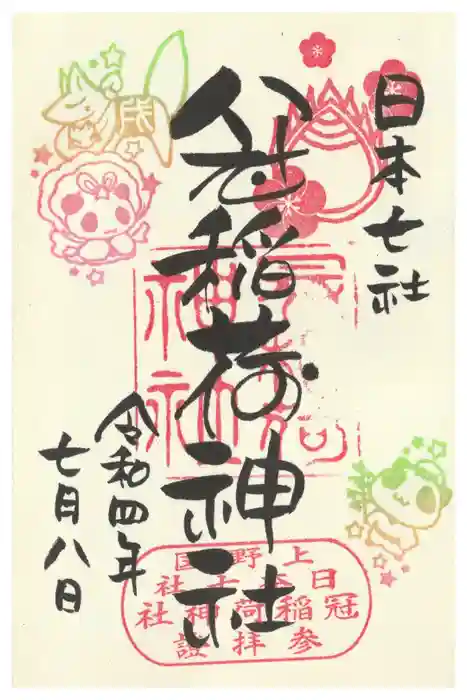 日本七社
冠稲荷神社
令和四年
七月八日
上野国
日本七社
冠稲荷神社
参拝證